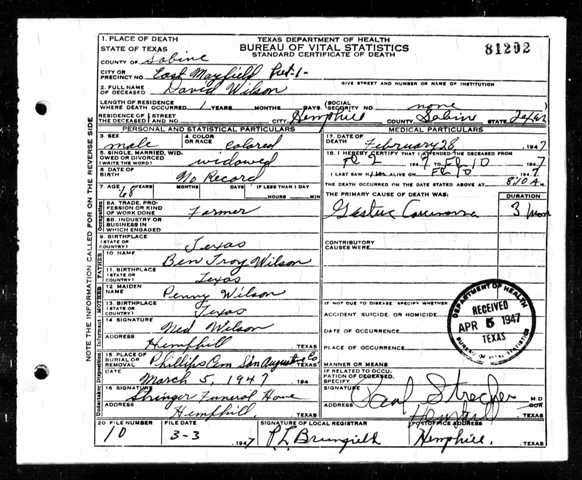 TEXAS DEPARTMENT OF HEALTH
BUREAU OF VITAL STATISTICS
STANDARD CERTIFICATE OF DEATH
81202
1. PLACE OF DEATH
STATE OF TEXAS
COUNTY OF Sabine
CITY OR
PRECINCT NO. East Mayfield Pct-1-
GIVE STREET AND NUMBER OR NAME OF INSTITUTION
2. FULL NAME
OF DECEASED David Wilson
LENGTH OF RESIDENCE
WHERE DEATH OCCURRED 1 YEARS MONTHS DAYS (SOCIAL SECURITY NO. none
RESIDENCE OF THE DECEASED STREET AND NO. CITY Hemphill COUNTY Sabine STATE Texas
PERSONAL AND STATISTICAL PARTICULARS
3. SEX male
4. COLOR OR RACE colored
5. SINGLE, MARRIED, WIDOWED OR DIVORCED widowed
6. DATE OF BIRTH No Record
7. AGE 68 YEARS MONTHS DAYS IF LESS THAN 1 DAY HOURS MIN
8A. TRADE, PROFESSION OR KIND OF WORK DONE Farmer
8B. INDUSTRY OR BUSINESS IN WHICH ENGAGED
9. BIRTHPLACE (STATE OR COUNTRY) Texas
10. NAME Ben Troy Wilson
11. BIRTHPLACE (STATE OR COUNTRY) Texas
12. MAIDEN NAME Penny Wilson
13. BIRTHPLACE (STATE OR COUNTRY) Texas
14. SIGNATURE Ned Wilson
ADDRESS Hemphill TEXAS
15. PLACE OF BURIAL OR REMOVAL Phillips Cem San Augustine Co TEXAS
DATE March 5, 1947 194
16. SIGNATURE Stringer Funeral Home
ADDRESS Hemphill, TEXAS
MEDICAL PARTICULARS
17. DATE OF DEATH February 28 1947
18. I HEREBY CERTIFY THAT I ATTENDED THE DECEASED FROM
Fb 2 1947 TO Fb 10 1947
I LAST SAW HIM ALIVE ON Fb 10 1947
THE DEATH OCCURRED ON THE DATE STATED ABOVE AT 8:10 A M.
THE PRIMARY CAUSE OF DEATH WAS: DURATION
Gastric Carcinoma 3 mos
CONTRIBUTORY CAUSES WERE:
IF NOT DUE TO DISEASE, SPECIFY WHETHER:
ACCIDENT, SUICIDE, OR HOMICIDE
DATE OF OCCURRENCE
PLACE OF OCCURRENCE
MANNER OR MEANS
IF RELATED TO OCCUPATION OF DECEASED, SPECIFY
SIGNATURE M.D.
ADDRESS Hemphill TEXAS
DEPARTMENT OF HEALTH
RECEIVED
APR 5 1947
TEXAS
BUREAU OF VITAL STATISTICS
20. FILE NUMBER 10
FILE DATE 3-3- 1947
SIGNATURE OF LOCAL REGISTRAR
POSTOFFICE ADDRESS Hemphill, TEXAS
NOTE THE INFORMATION CALLED FOR ON THE REVERSE SIDE